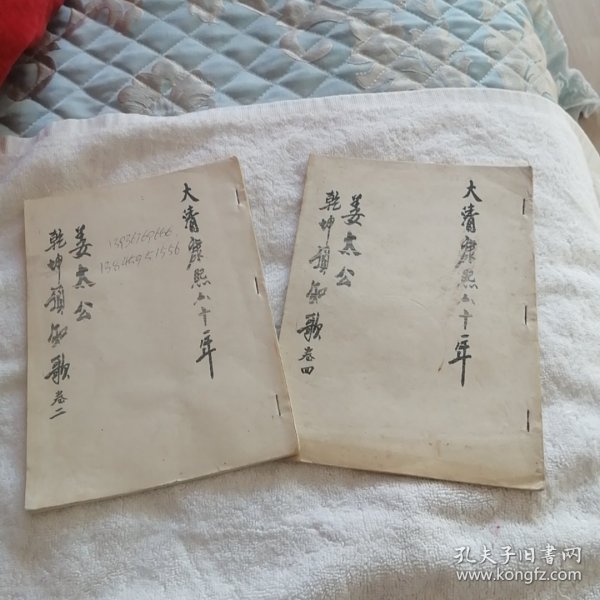 大清康熙六十一年
姜太公
乾坤預知歌 卷二
大清康熙六十一年
姜太公
乾坤預知歌 卷四
孔夫子旧书网
www.kongfz.com